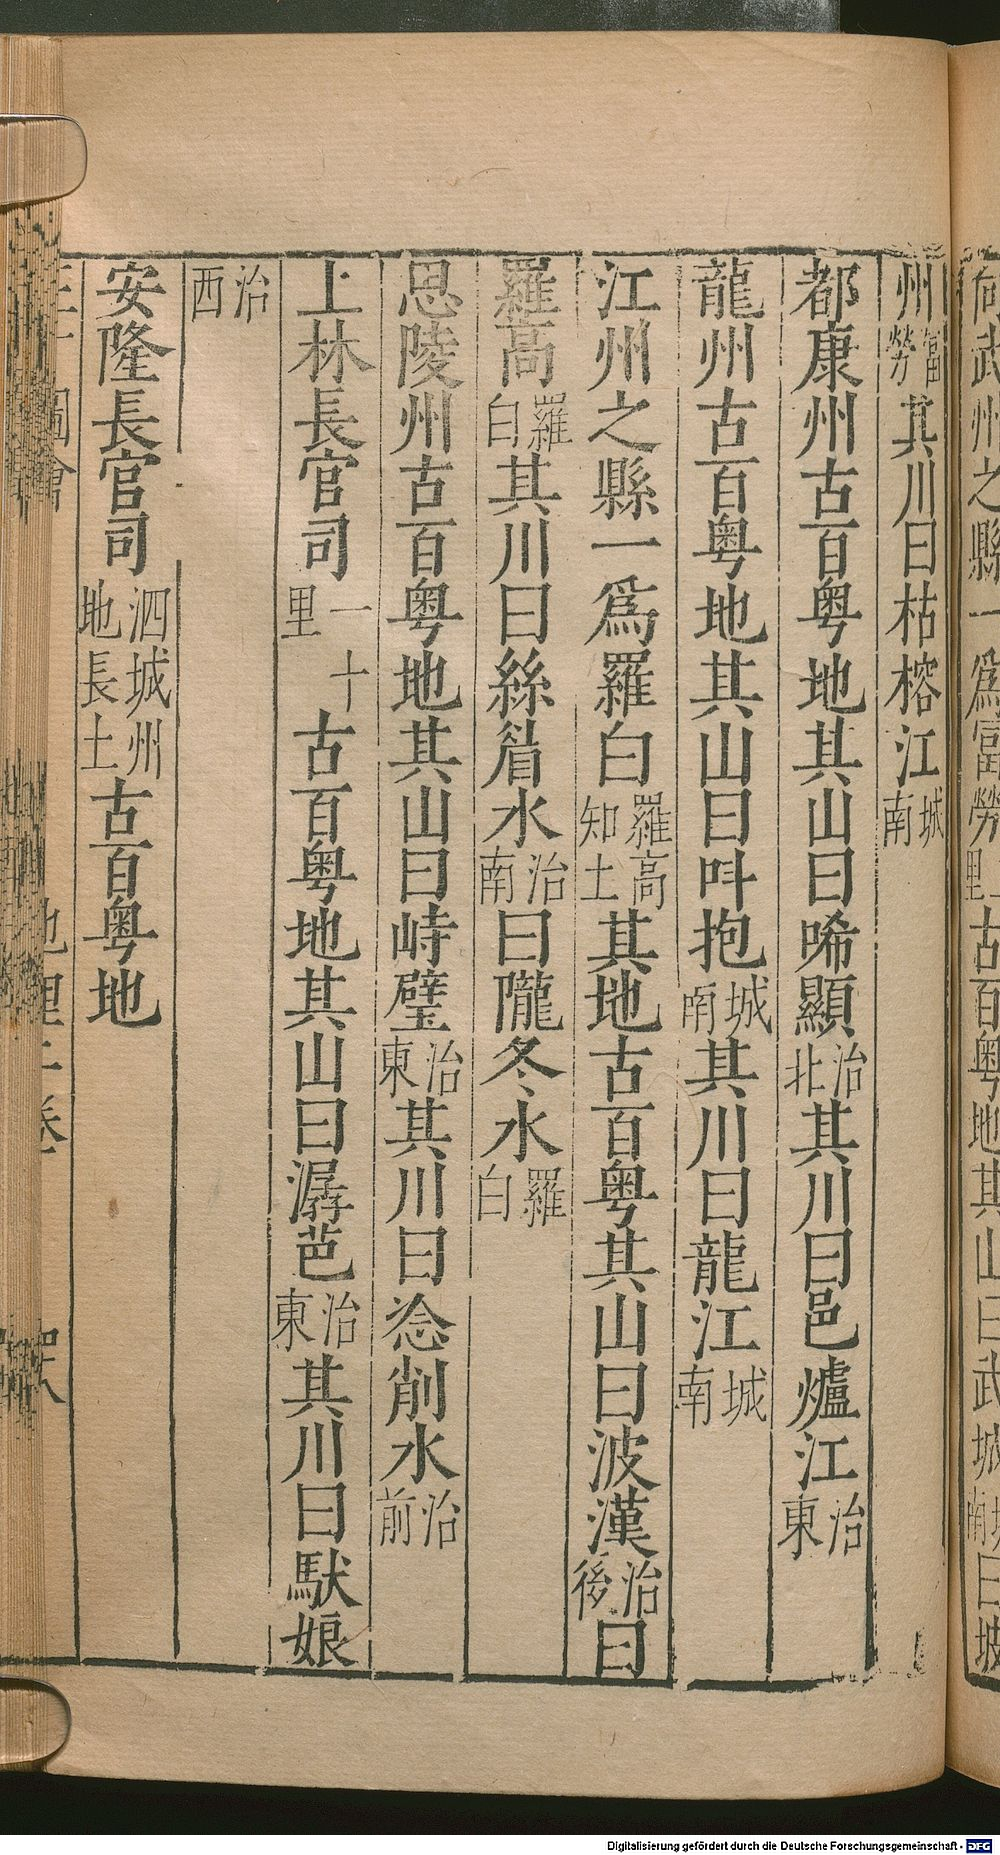 向武州之縣一爲富勞里一古百粤地其山曰武城南城曰坡
州富勞其川曰枯榕江城南
都康州古百粤地其山曰唏顯治北其川曰邑爐江治東
龍州古百粤地其山曰呌抱城南其川曰龍江城南
江州之縣一爲羅白羅高知土其地古百粤其山曰波漢治後曰
羅高羅白其川曰絲眉水治南曰隴冬水羅白
思陵州古百粤地其山曰峙壁治東其川曰淰削水治前
上林長官司一十里古百粤地其山曰潺芭治東其川曰馱娘
治西
安隆長官司泗城州地長土古百粤地
地理 卷
Digitalisierung gefördert durch die Deutsche Forschungsgemeinschaft - DFG